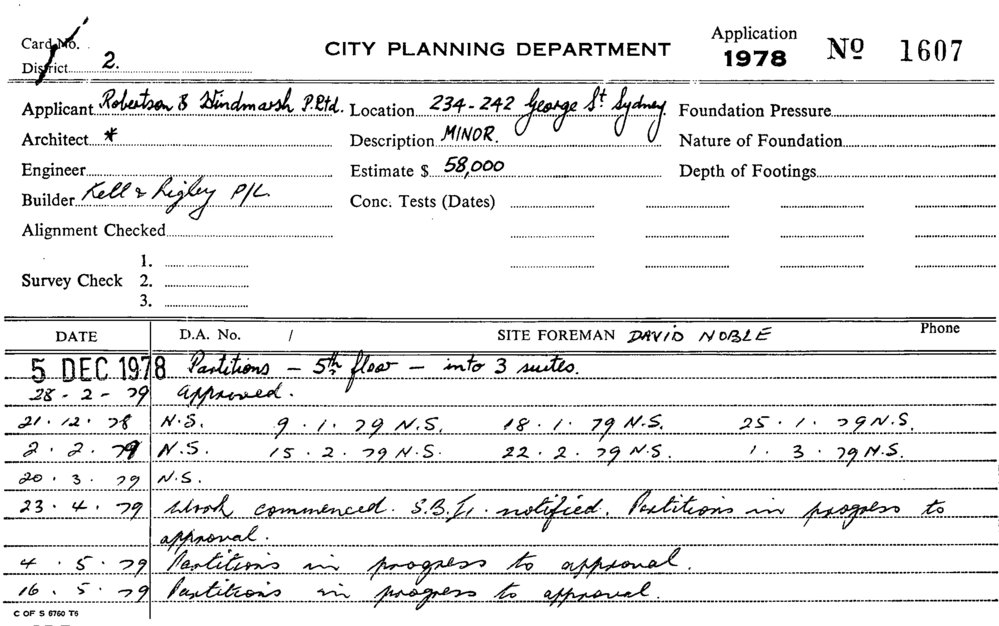 Card No.
CITY PLANNING DEPARTMENT
Application
1978
No 1607
District 2.
Applicant Robertson & Hindmarsh P.Ltd. Location 234-242 George St Sydney Foundation Pressure
Architect * Description MINOR. Nature of Foundation
Engineer Estimate $ 58,000 Depth of Footings
Builder Kell & Rigby P/L Conc. Tests (Dates)
Alignment Checked
1.
Survey Check 2.
3.
DATE D.A. No. / SITE FOREMAN DAVID NOBLE Phone
5 DEC 1978 Partitions – 5th floor – into 3 suites.
28-2-79 Approved.
21.12.78 N.S. 9.1.79 N.S. 18.1.79 N.S. 25.1.79 N.S.
2.2.79 N.S. 15.2.79 N.S. 22.2.79 N.S. 1.3.79 N.S.
20.3.79 N.S.
23.4.79 Work commenced. S.B.I. notified. Partitions in progress to
approval.
4.5.79 Partitions in progress to approval.
16.5.79 Partitions in progress to approval.
C OF S 6760 T6